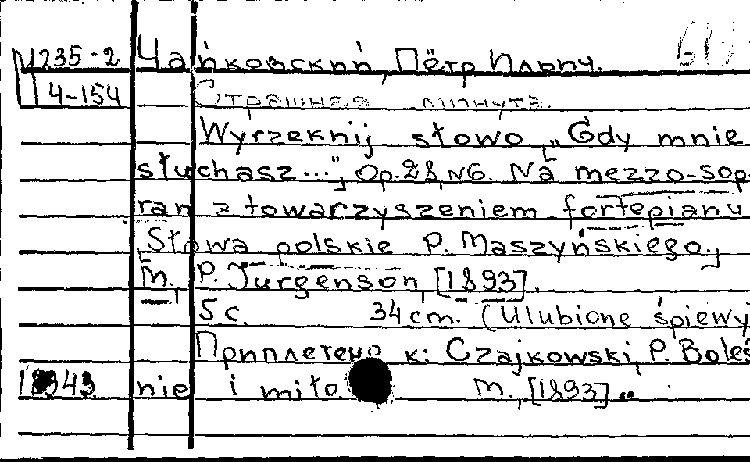 Ц235-2 Чайковский, Пётр Ильич.
14-154 Страшная минута.
Wyrzeknij słowo „Gdy mnie
słuchasz...", Op. 28, N6. Na mezzo-sop-
ran z towarzyszeniem fortepianu
Słowa polskie P. Maszyńskiego.
M., P. Jurgenson, [1893].
5 c. 34 cm. (Ulubione śpiewy
Приплетено к: Czajkowski, P. Boleś
nie i miło M., [1893]..